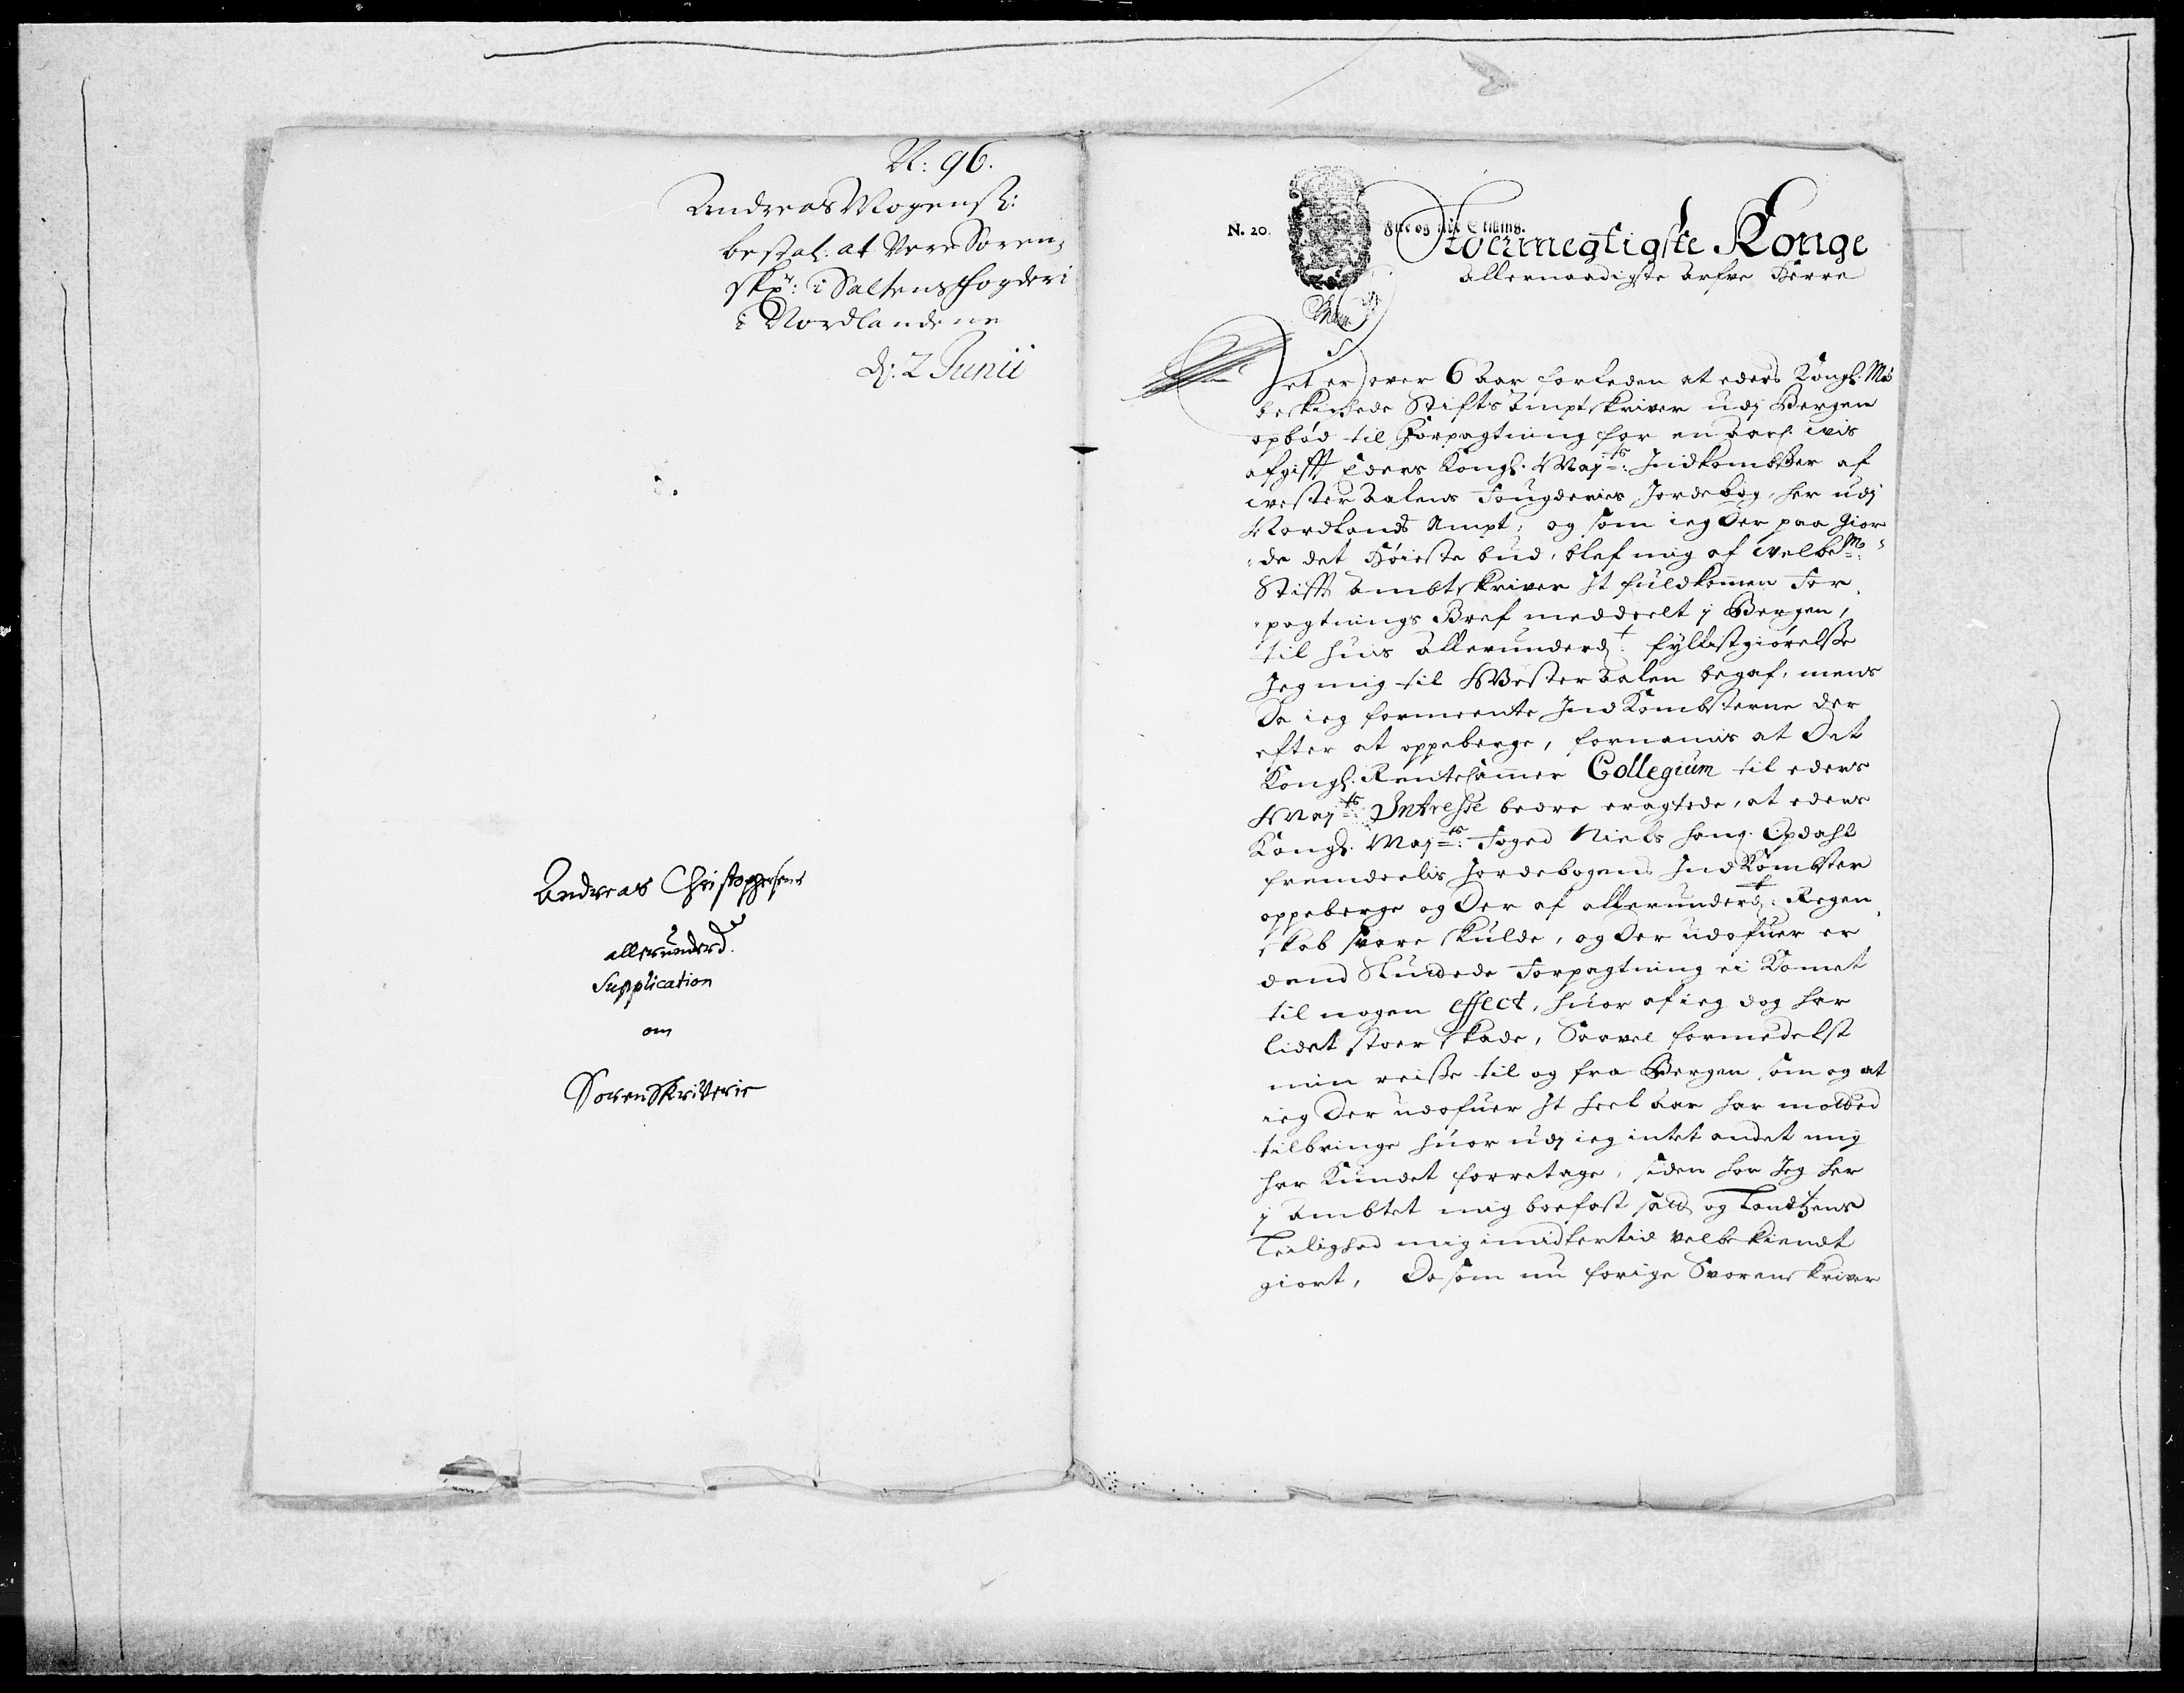 N: 96.
Andreas Mogens:
bestal: at Vere Soren-
skr: i Saltens fogderi
i Nordlandene
d: 2 Junii
Andreas Christophersens
allerunderd.
Supplication
om
SorenSkriverie
N. 20.
Stoermegtigste Konge
Allernaadigste Arfve Herre
Det er over 6 Aar forleden at eders Kongl: Ma
beskickede Stifts Amptskriver udj Bergen
opbød til Forpagtning for en Aarl. wis
afgifft Eders Kongl. Majts: Indkombster af
westeraalens Fougderies Jordebog, her udj
Nordlands Ampt; og som ieg der paa gior
de det Høieste bud, blef mig af welbem:
Stiffts Ambtskriver It fuldkommen For
pagtnings Bref meddeelt j Bergen,
til huis allerunderdt: fyllistgiørelsse
Jeg mig til Westeraalen begaf, mens
Da ieg formeente IndKombsterne der
efter at oppeberge, fornamis at Det
Kongl. Rentekammer Collegium til eders
Majts: Intresse bedre eragtede, at eders
Kongl. Majts: Foged Niels Hans. Opdahl
fremdeelis Jordebogens IndKombster
oppeberge og Der af allerunderdt: Regen
skab svare skulde, og der udofuer er
dend Sluttede Forpagtning ei Komet
til nogen effect, huor af ieg dog har
lidet stoer skade, Saavel formedelst
min reisse til og fra Bergen som og at
ieg Der udofuer It heel Aar har motted
tilbringe huor udj ieg intet andet mig
har Kundet forretage, siden har Jeg her
j Ambtet mig boefast satt og Landtzens
Leilighed mig imidlertid velbekiendt
giort, Da som nu forige Sorenskriver